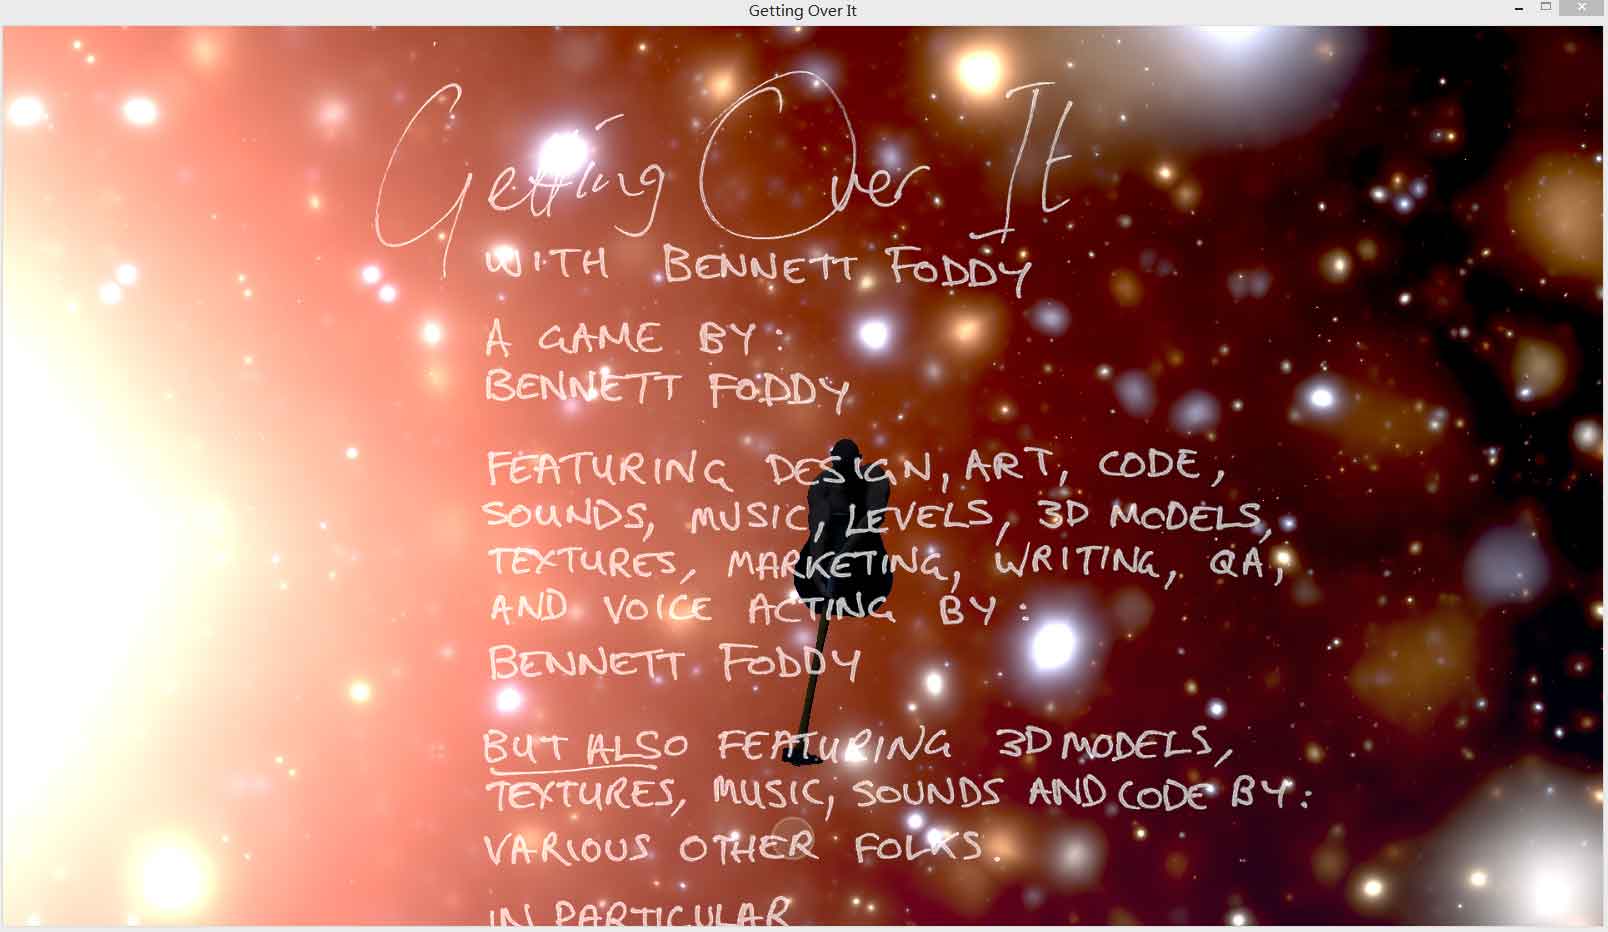 Getting Over It
Getting Over It
WITH BENNETT FODDY
A GAME BY:
BENNETT FODDY
FEATURING DESIGN, ART, CODE,
SOUNDS, MUSIC, LEVELS, 3D MODELS,
TEXTURES, MARKETING, WRITING, QA,
AND VOICE ACTING BY:
BENNETT FODDY
BUT ALSO FEATURING 3D MODELS,
TEXTURES, MUSIC, SOUNDS AND CODE BY:
VARIOUS OTHER FOLKS.
IN PARTICULAR